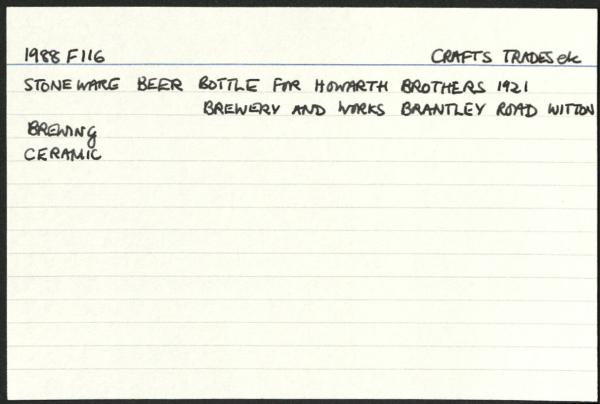 1988 F116 CRAFTS TRADES etc
STONEWARE BEER BOTTLE FOR HOWARTH BROTHERS 1921
BREWERY AND WORKS BRANTLEY ROAD WITTON
BREWING
CERAMIC